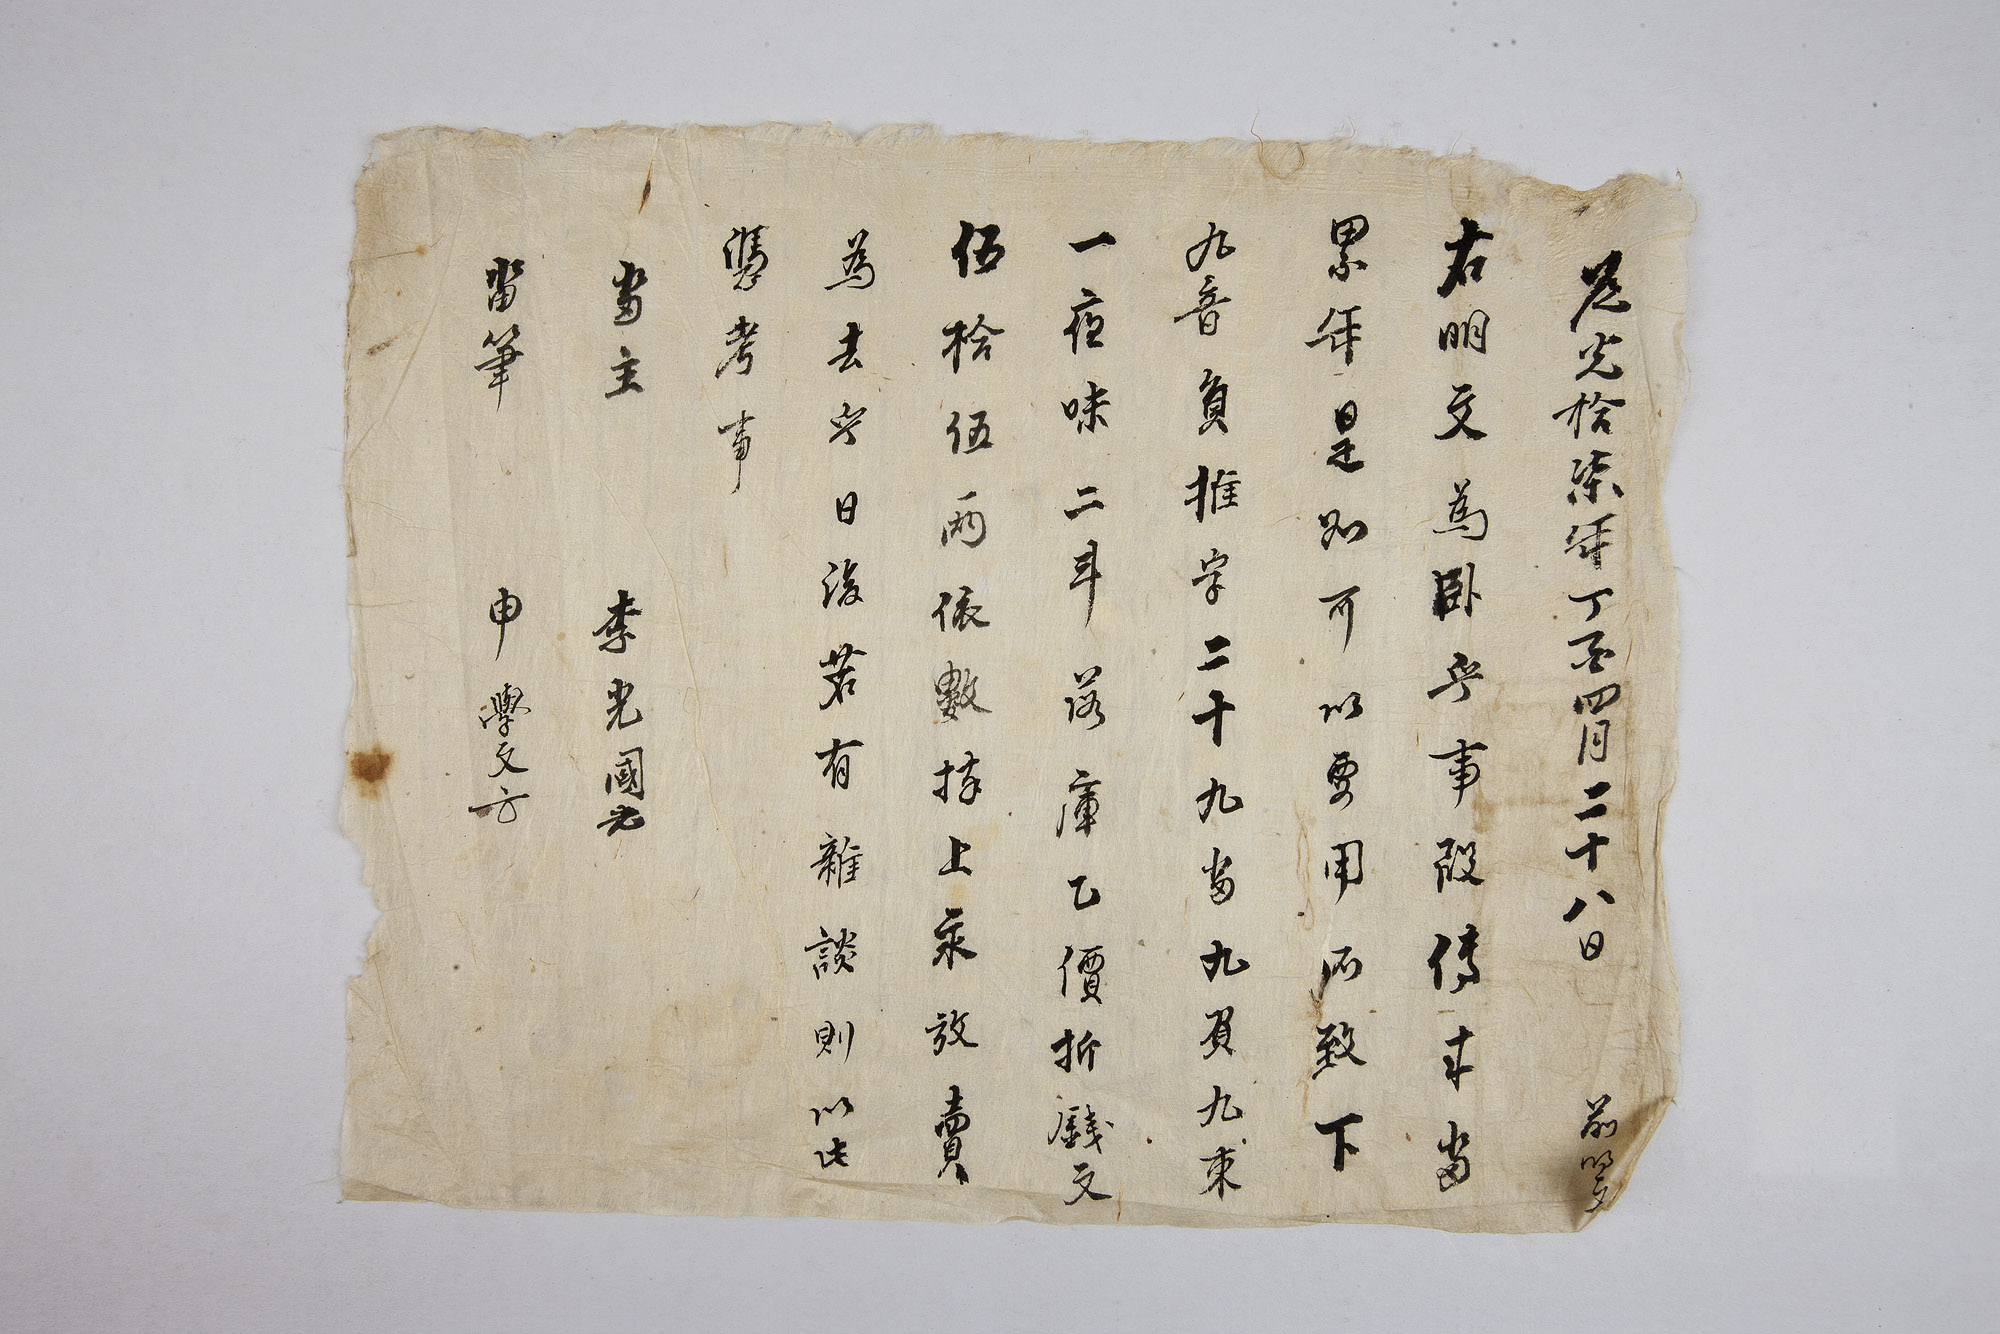 道光拾柒年丁酉四月二十八日 前明文
右明文為臥乎事段傳來畓
累年是如可以要用所致下
九音負推字二十九畓九負九束
一夜味二斗落庫乙價折錢文
伍拾伍兩依數捧上永放賣
為去乎日後若有雜談則以此
憑考事
畓主 李光國
畓筆 申學文